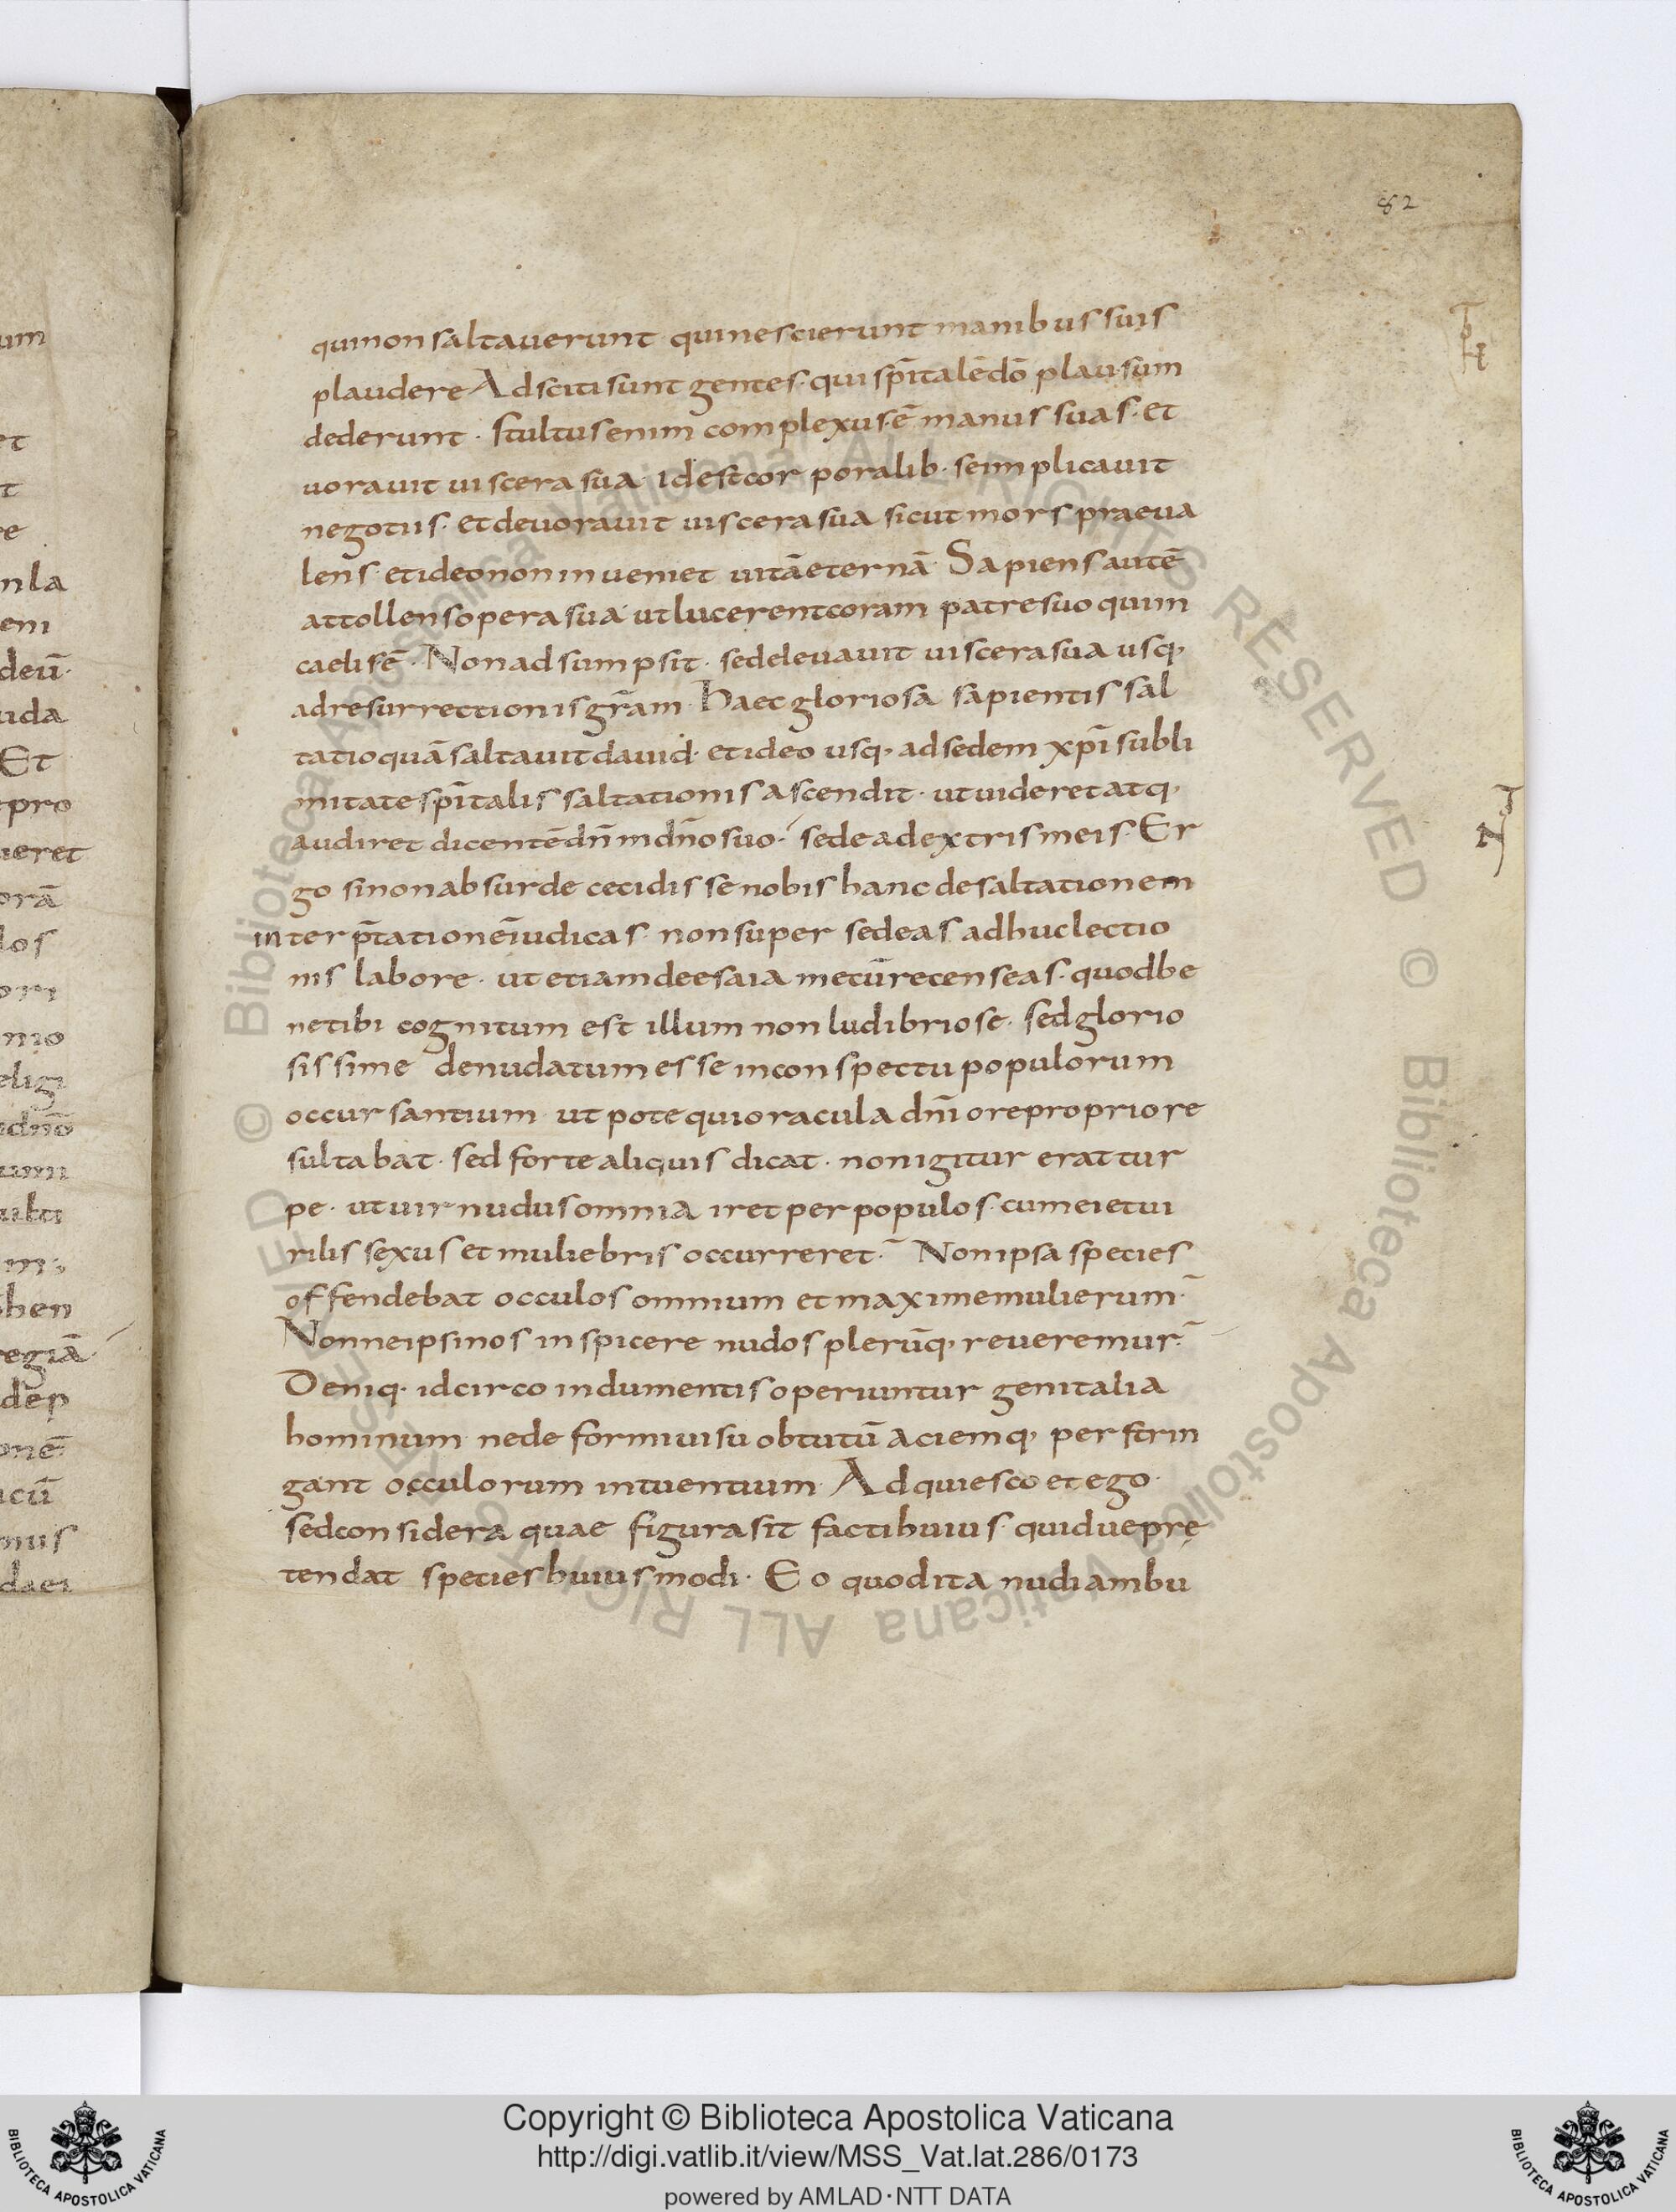 82
qui non saltauerunt qui nescierunt manibus suis
plaudere Adsciti sunt gentes· qui sp̄italē dō plausum
dederunt · stultus enim complexus ē manus suas· et
uorauit uiscera sua· id est corporalib· se implicauit
negotiis· et deuorauit uiscera sua sicut mors praeua
lens· et ideo non inueniet uitā eternā· Sapiens autē
attollens opera sua ut lucerent coram patre suo qui in
caelis ē · Non adsumpsit · sed eleuauit uiscera sua usq,
ad resurrectionis grām· haec gloriosa sapientis sal
tatio quā saltauit dauid· et ideo usq, ad sedem xp̄i subli
mitate sp̄italis saltationis ascendit · ut uideret atq,
audiret dicentē dn̄m dn̄o suo· sede ad extris meis· Er
go si non absurde cecidisse nobis hanc de saltationem
interp̄tationē iudicas· non supersedeas adhuc lectio
nis labore · ut etiam de esaia mecū recenseas· quod be
ne tibi cognitum est illum non ludibriose· sed glorio
sissime denudatum esse in conspectu populorum
occursantium· ut pote qui oracula dn̄i ore proprio re
sultabat · sed forte aliquis dicat · non igitur erat tur
pe · ut uir nudus omnia iret per populos· cum ei et ui
rilis sexus et muliebris occurreret· Non ipsa species
offendebat occulos omnium et maxime mulierum·
Nonne ipsi nos inspicere nudos plerūq, reueremur·
Deniq· idcirco indumentis operiuntur genitalia
hominum ne deformi uisu obtutū aciemq, perstrin
gant occulorum intuentium· Adquiesco et ego·
sed considera quae figura sit facti huius· quidue prę
tendat species huiusmodi · Eo quod ita nudi ambu
um
et
t
re
nla
eni
deū·
uda
Et
pro
ueret
orā
los
ori
nio
elig
dn̄o
hen
regiā
dep
onē
cū
mus
daei
© Biblioteca Apostolica Vaticana ALL RIGHTS RESERVED © Biblioteca Apostolica Vaticana ALL RIGHTS RESERVED
Copyright © Biblioteca Apostolica Vaticana
http://digi.vatlib.it/view/MSS_Vat.lat.286/0173
powered by AMLAD·NTT DATA
BIBLIOTECA APOSTOLICA VATICANA
BIBLIOTECA APOSTOLICA VATICANA